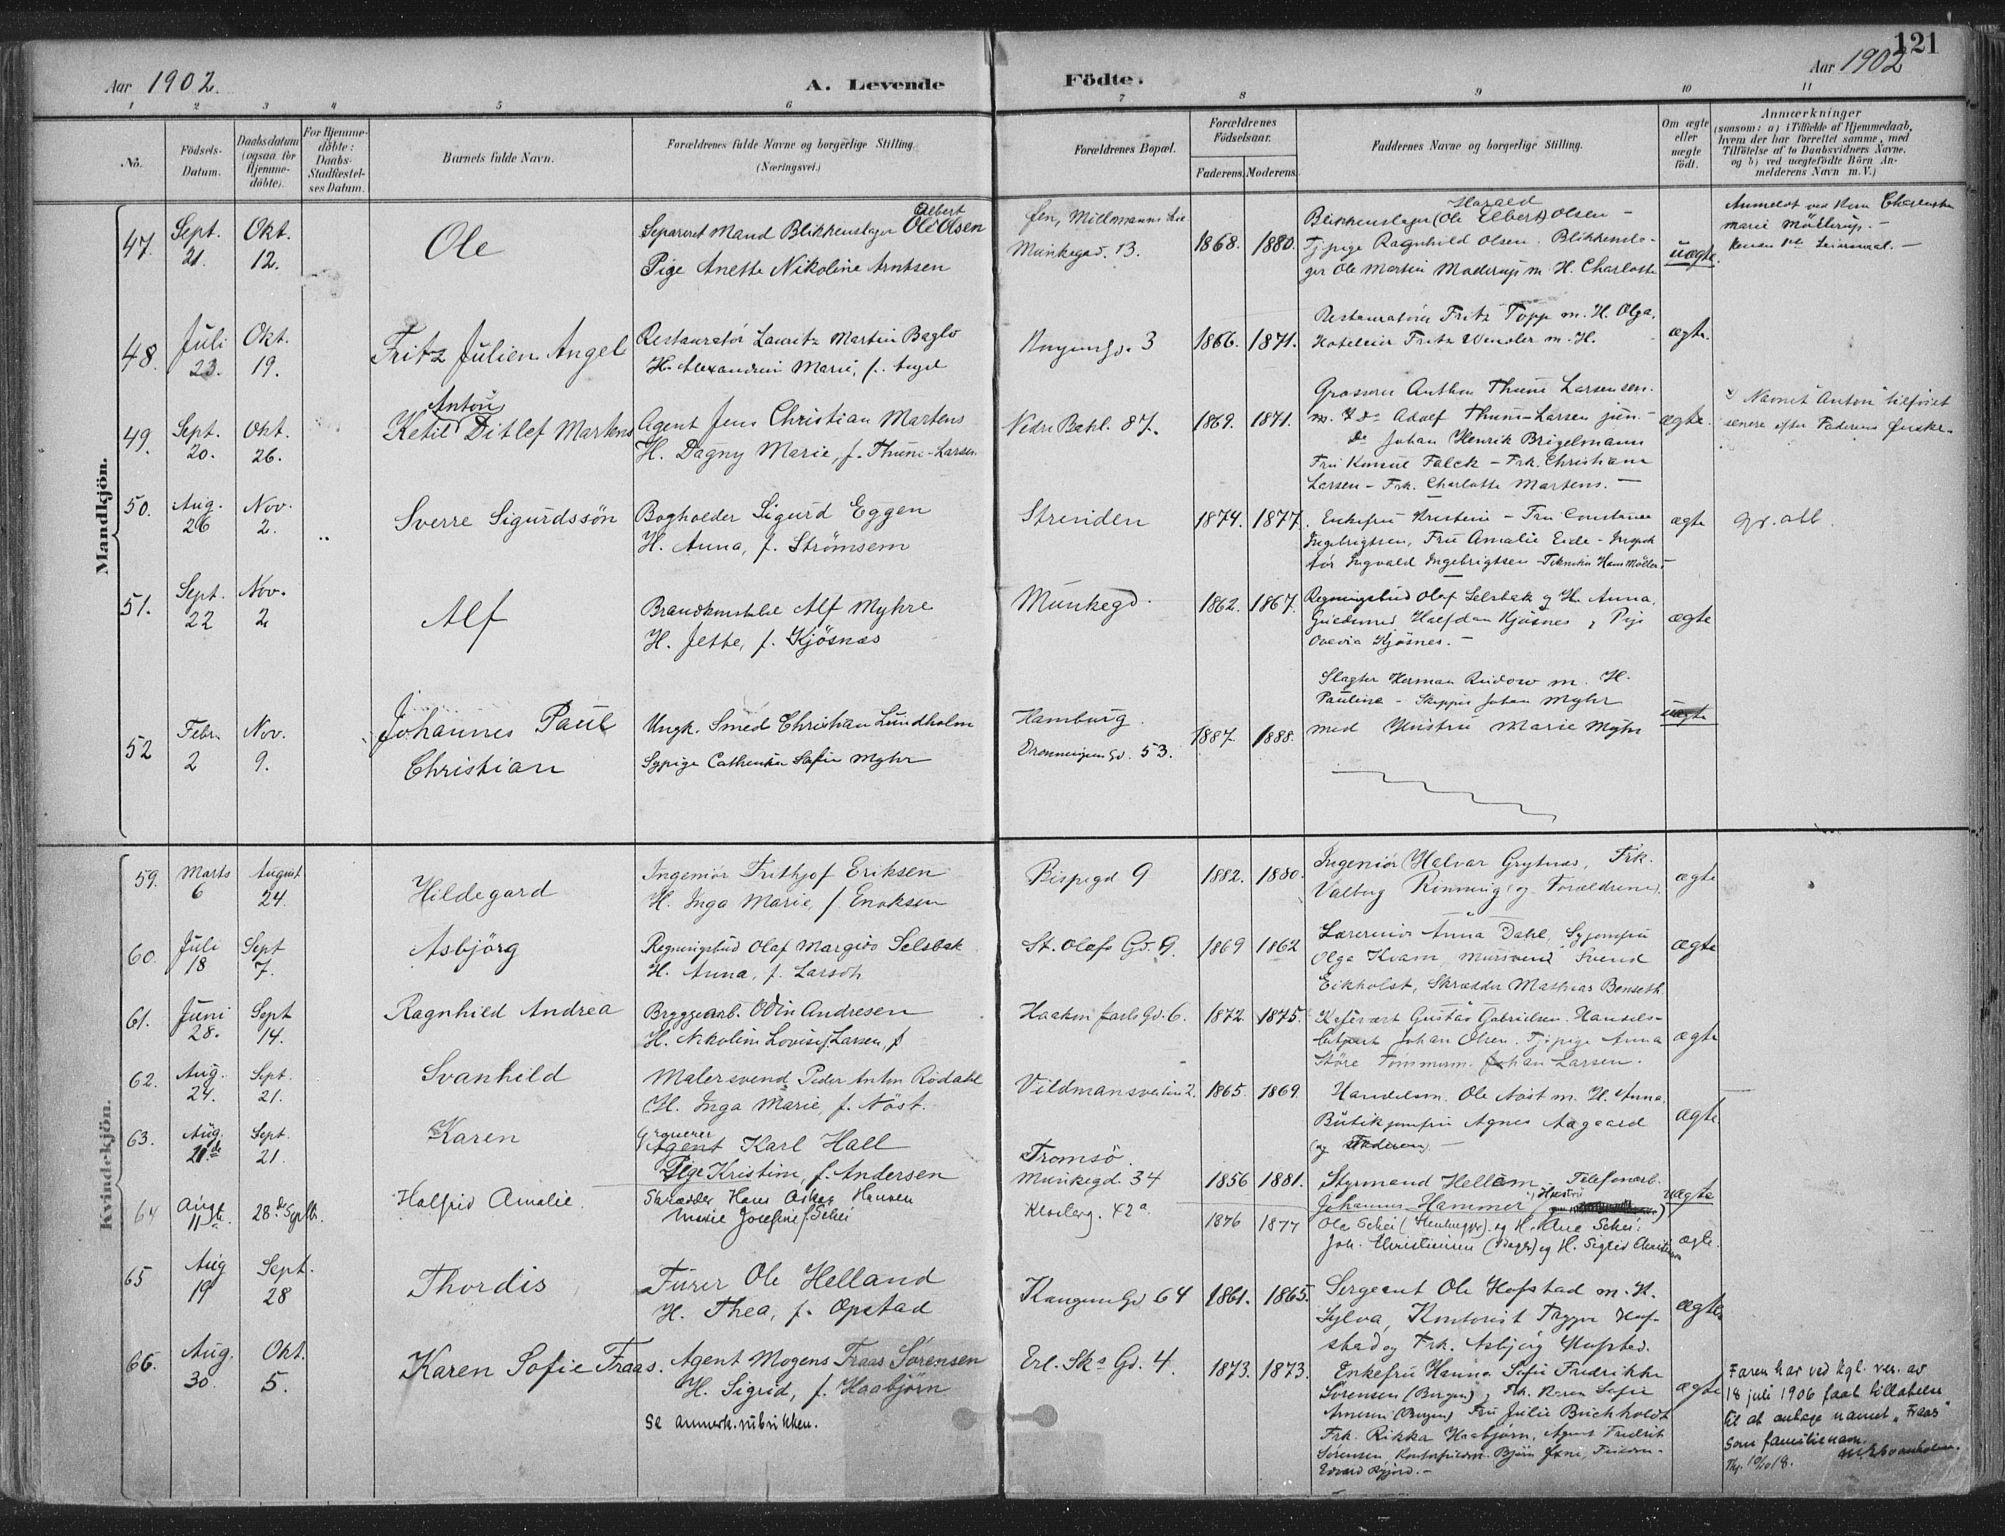 121
Aar 1902.
A. Levende
Födte.
Aar 1902
1 2 3 4 5 6 7 8 9 10 11
No.
Födsels-Datum.
Daabsdatum (ogsaa for Hjemmedöbte).
For Hjemmedöbte: Daabs-Stadfæstelses Datum.
Barnets fulde Navn.
Forældrenes fulde Navne og borgerlige Stilling. (Næringsvei.)
Forældrenes Bopæl.
Forældrenes Födselsaar.
Faderens. Moderens.
Faddernes Navne og borgerlige Stilling.
Om ægte eller uægte födt.
Anmærkninger
(saasom: a) i Tilfælde af Hjemmedaab, hvem der har forrettet samme, med Tilföielse af to Daabsvidners Navne, og b) ved uægtefödte Börn Anmelderens Navn m. V.)
Mandkjön.
47. Sept. 21. Okt. 12.
Ole
Separeret Mand Blikkenslager Ole Albert Olsen
Pige Anette Nikoline Arntsen
Munkegad. 13.
1868. 1880.
Harald
Blikkenslager (Ole Elbert) Olsen –
Tj.pige Ragnhild Olsen. Blikkensla-
ger Ole Martin Møllerup m. H. Charlotte
uægte.
Anmeldt ved Fru Charlotte
Marie Møllerup. –
48. Juli 23. Okt. 19.
Fritz Julien Angel
Restauratör Lauritz Martin Baglo
H. Alexandrine Marie, f. Angel
3
1866. 1871.
Restauratör Fritz Topp m. H. Olga.
Hoteleier Fritz Wendler m. H.
ægte.
49. Sept. 20. Okt. 26.
Anton
Ketil Ditlef Martens
Agent Jens Christian Martens
H. Dagny Marie, f. Thune-Larsen
Nedre Bakl. 87.
1869. 1871.
Grosserer Anthon Thune Larsen sen.
m. H. do Adolf Thune-Larsen jun. –
do Johan Henrik Brigelmann
Fru Konsul Falck – Frk. Christiane
Larsen – Frk. Charlotte Martens. –
ægte.
Navnet "Anton" tilföiet
senere efter Faderens Ønske.
50. Aug. 26 Nov. 2.
Sverre Sigurdssön
Bogholder Sigurd Eggen
H. Anna, f. Strømsem
Strinden
1874. 1877.
Enkefru Kristine – Fru Constance
Ingebrigtsen, Fru Amalie Eide – Inspek
tör Ingvald Ingebrigtsen – Tekniker Hans Möller –
ægte
51. Sept. 22 Nov. 2
Alf
Brandkonstabel Alf Myhre
H. Jette, f. Kjösnes
Munkegd.
1862. 1867.
Regningsbud Olaf Selsbak og H. Anna.
Halfdan Kjösnes, Pige
Ovedia Kjösnes. –
ægte
52 Febr. 2 Nov. 9.
Johannes Paul
Christian
Ungk. Smed Christian Lundholm
Sypige Cathrine Sofie Myhr
Hamburg.
Dronningens Gd. 53.
1887. 1888.
Slagter Herman Rudow m. H.
Pauline – Skipper Johan Myhr
med Hustru Marie Myhr
uægte
Kvindekjön.
59. Marts 6 August 24.
Hildegard
Ingeniör Frithjof Eriksen
H. Inga Marie, f. Enoksen
Bispegd 9
1882. 1880.
Ingeniör Halvar Grytnes, Frk.
Valborg Rönning (og Forældrene).
ægte
60. Juli 18 Sept 7.
Asbjörg
Regningsbud Olaf Margido Selsbak
H. Anna, f. Larsen
St. Olafs Gd. 9.
1869 1862
Lærerinde Anna Dahl, Syjomfru
Olga Kvam, Mursvend Svend
Eikholst, Skrædder Mathias Benseth.
ægte
61. Juni 28. Sept 14.
Ragnhild Andrea
Bryggearb. Odin Andresen
H. Nikoline Lovise f. Larsen, f
Haakon Jarls Gd. 6.
1872. 1875.
Gustav Gabrielsen. Handels-
Johan Olsen. Tj.pige Anna
Störe Tömmerm. Johan Larsen.
ægte
62. Aug. 24. Sept. 21.
Svanhild
Malersvend Peder Anton Rödahl
H. Inga Marie, f. Nöst.
Vildmansveiten 2.
1865. 1869.
Handelsm. Ole Nöst m. H. Anna.
Butikjomfru Agnes Aagaard
(og Faderen). –
ægte
63. Aug. 21de Sept. 21.
Karen
Agent Karl Hall
Pige Kristine, f. Andersen
Tromsö.
Munkegd. 34
1856 1881.
Styrmand Hellem – Telefonarb.
Johannes Hammer
uægte
64 Augt. 11te 28de Septbr.
Halfrid Amalie.
Skrædder Hans Oskar Hansen
Marie Josefine f. Schei
42a
1876 1877
Ole Schei og H. Ane Schei:
Joh. Christiansen (Bager) og H. Sigrid Christiansen
ægte.
65 Aug 19 Sept. 28
Thordis
Furer Ole Helland
H. Thea, f. Opstad
Kongens Gd 64
1861. 1865.
Sergeant Ole Hofstad m. H.
Sylva, Kontorist Trygve Hof-
stad og Frk. Asbjörg Hofstad.
ægte
66. Aug. 30 Okt. 5.
Karen Sofie Fraas.
Agent Mogens Fraas Sørensen
H. Sigrid, f. Haabjörn
Se anmerk.rubrikken.
Erl. Sks Gd. 4.
1873. 1873.
Enkefru Hanna Sofie Fredrikke
Sörensen (Bergen), Frk. Karen Sofie
Arnesen (Bergen) Fru Julie Buchholdt
Frk. Rikka Haabjörn, Agent Fredrik
Sörensen,
ægte
Faren har ved kgl. res. av
18 juli 1906 faat tillatelse
til at antage navnet „Fraas"
som familienavn.